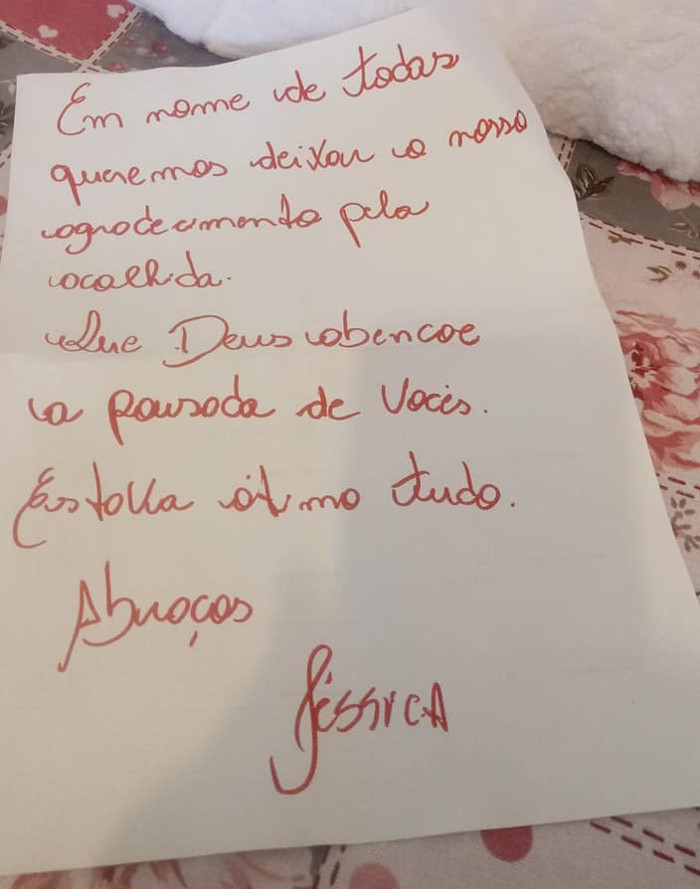 Em nome de todas
queremos deixar o nosso
agradecimento pela
acolhida.
Que Deus abencoe
a pousada de Vocês.
Estava ótimo tudo.
Abraços
Jéssica